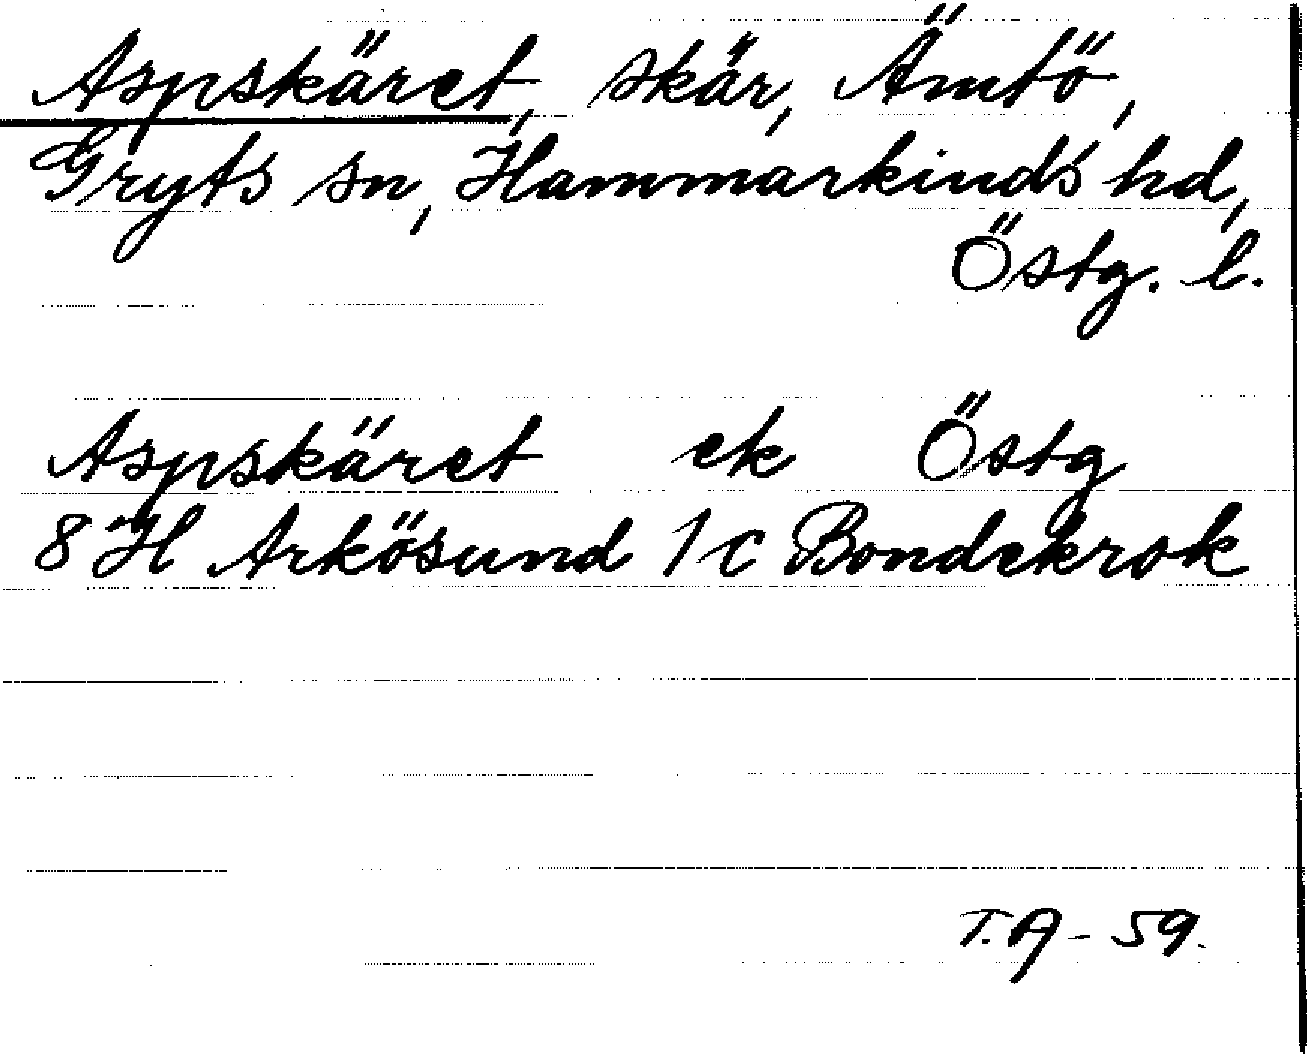 Aspskäret, skär, Ämtö,
Gryts sn, Hammarkinds hd,
Östg. l.
Aspskäret ek Östg
8 H Arkösund 1 c Bondekrok
T.A - 59.